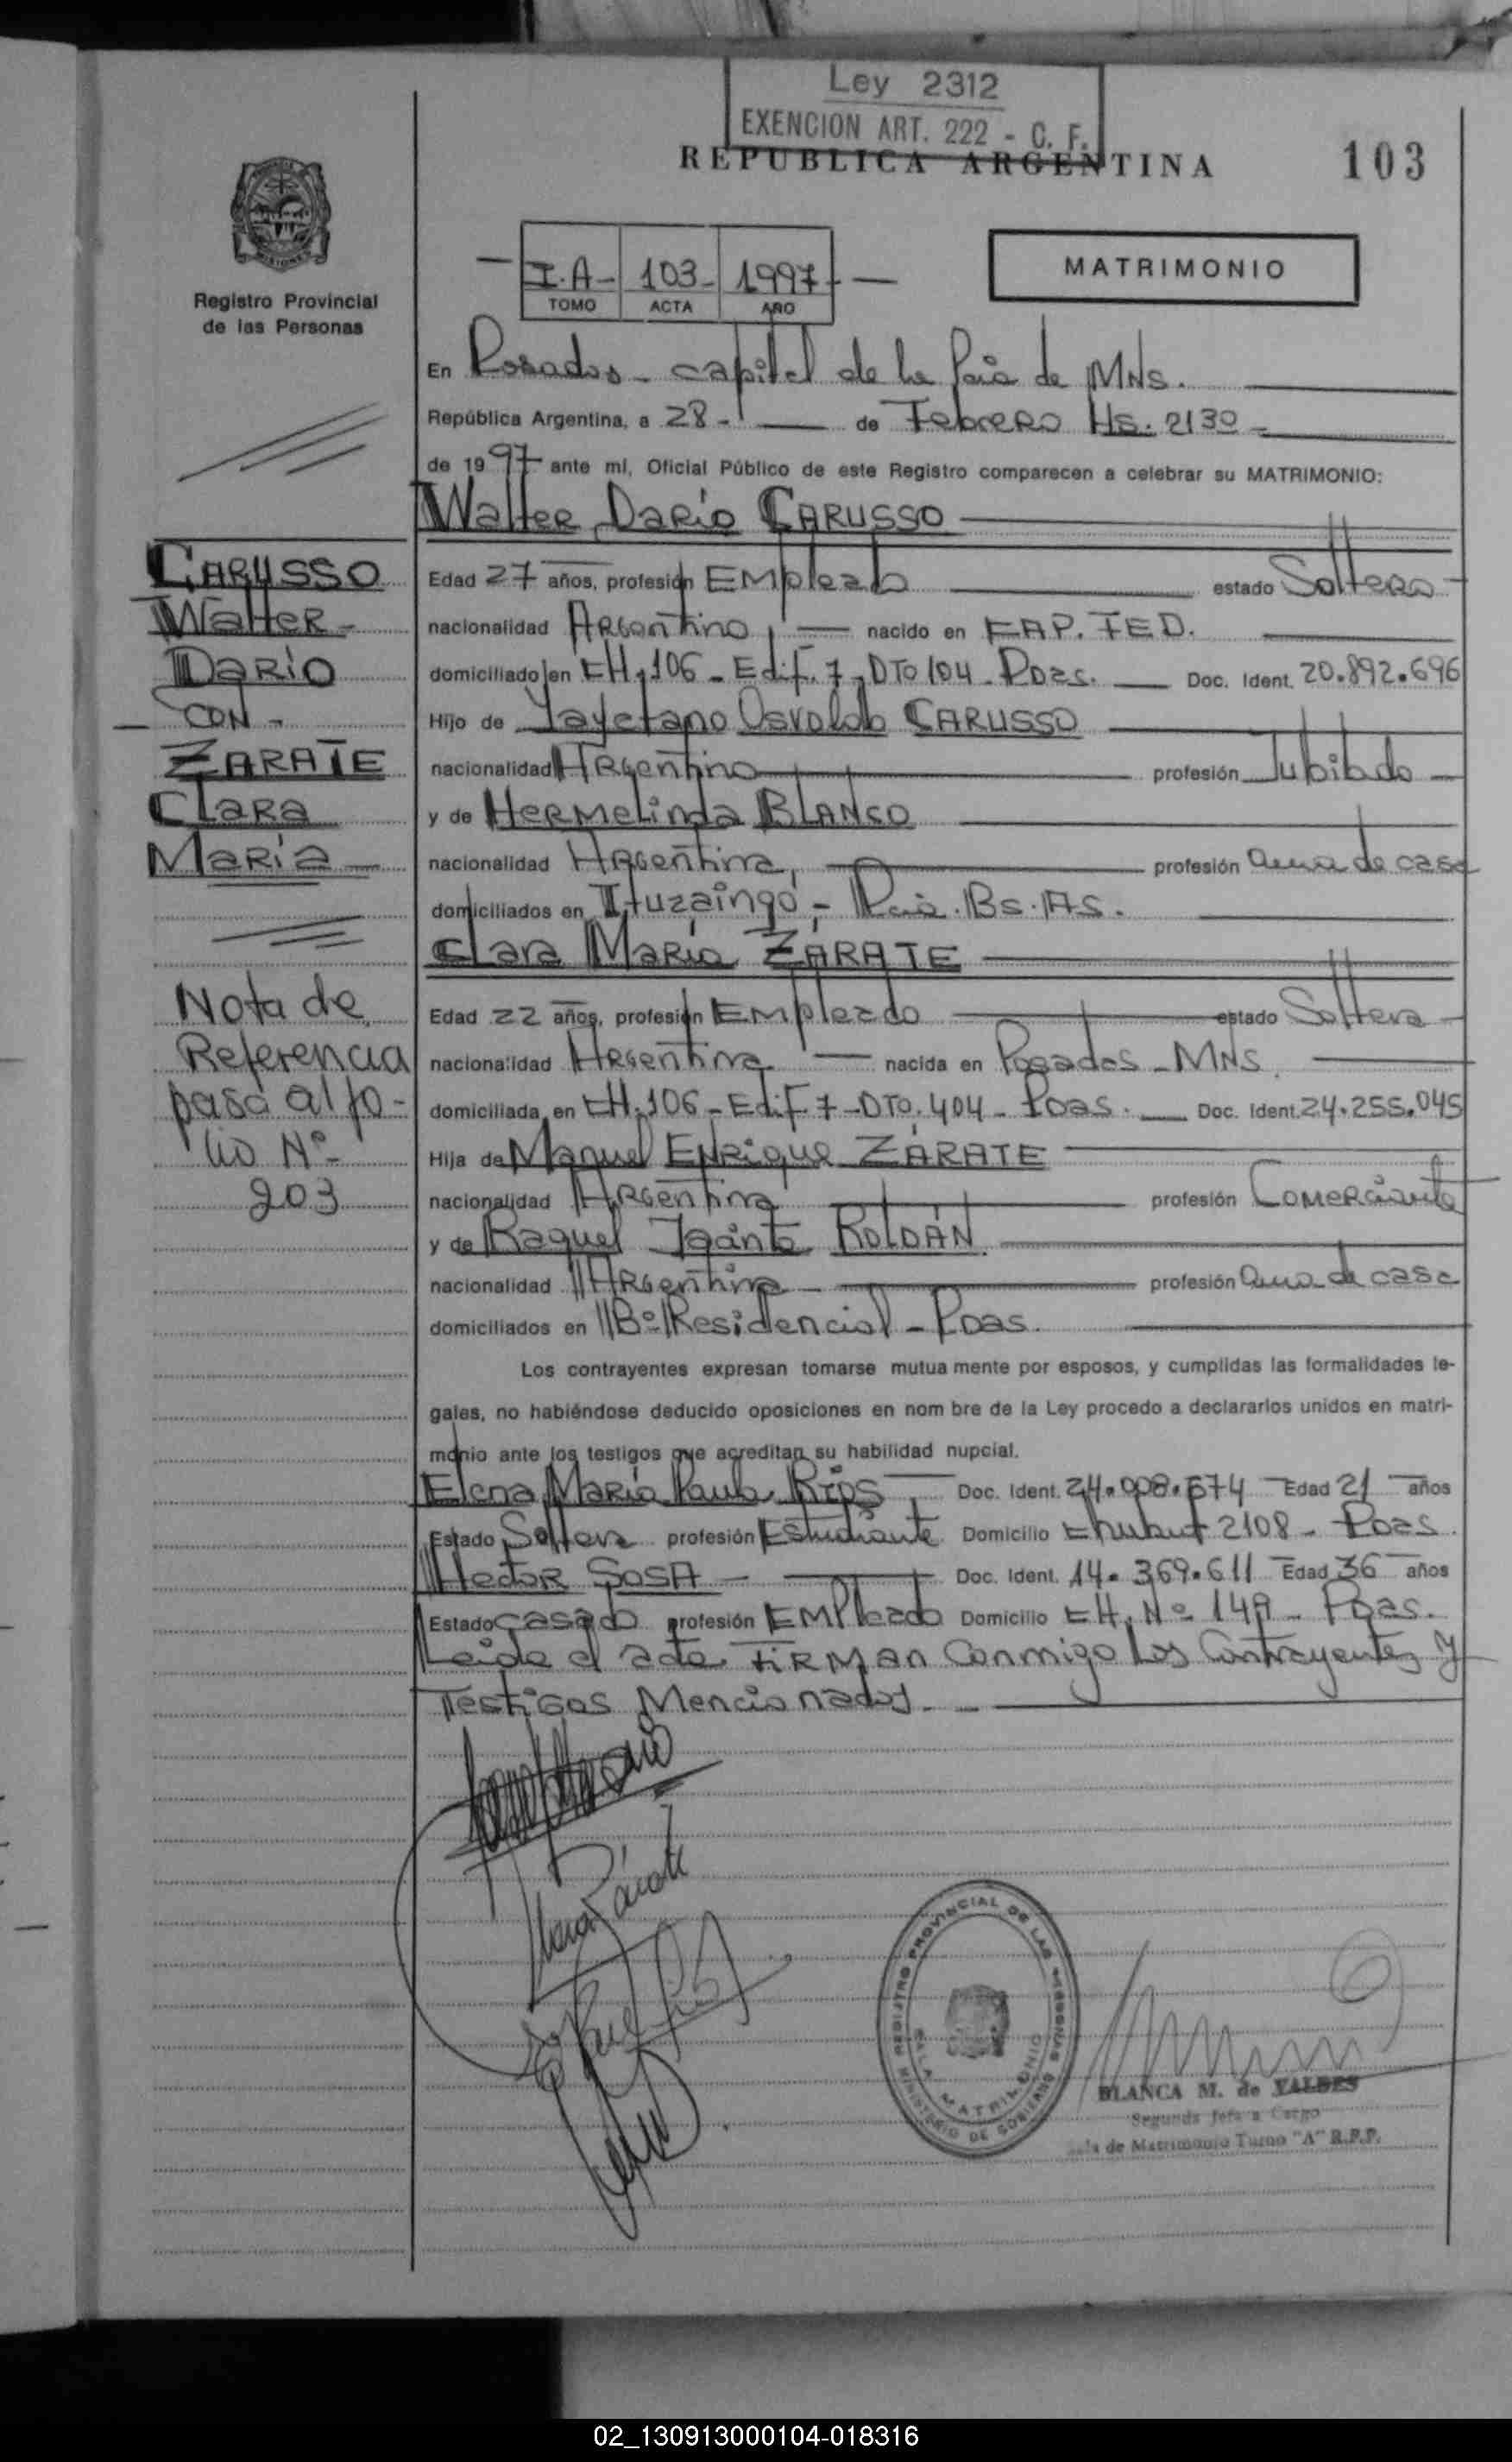 Ley 2312
EXENCION ART. 222 - C. F.
REPUBLICA ARGENTINA
103
MISIONES
Registro Provincial
de las Personas
I.A- 103- 1997-
TOMO ACTA AÑO
MATRIMONIO
En Posadas - capital de la Pcia de MNS.
República Argentina, a 28- de Febrero Hs. 2130-
de 1997 ante mí, Oficial Público de este Registro comparecen a celebrar su MATRIMONIO:
Walter Darío CARUSSO
Edad 27 años, profesión Empleado estado Soltero
nacionalidad Argentino, nacido en CAP. FED.
domiciliado en CH. 106 - Edif. 7 - DTO 104 - Poas. Doc. Ident. 20.892.696
Hijo de Cayetano Osvaldo CARUSSO
nacionalidad Argentino profesión Jubilado
y de Hermelinda BLANCO
nacionalidad Argentina, profesión ama de casa
domiciliados en Ituzaingó - Pcia. Bs. As.
Clara María ZÁRATE
Edad 22 años, profesión Empleado estado Soltera
nacionalidad Argentina nacida en Posadas - MNS.
domiciliada en CH. 106 - Edif 7 - DTO. 404 - Poas. Doc. Ident. 24.255.045
Hija de Manuel Enrique ZÁRATE
nacionalidad Argentina profesión Comerciante
y de Raquel ROLDÁN
nacionalidad Argentina profesión ama de casa
domiciliados en Bº Residencial - Poas.
Los contrayentes expresan tomarse mutua mente por esposos, y cumplidas las formalidades le-
gales, no habiéndose deducido oposiciones en nom bre de la Ley procedo a declararlos unidos en matri-
monio ante los testigos que acreditan su habilidad nupcial.
Elena María Paula Ríos Doc. Ident. 24.008.674 Edad 21 años
Estado Soltera profesión Estudiante Domicilio Chubut 2108 - Poas.
Hector SOSA - Doc. Ident. 14.369.611 Edad 36 años
Estado casado profesión Empleado Domicilio CH. Nº 149 - Poas.
Leída el acta FIRMAN Conmigo Los Contrayentes y
Testigos Mencionados.
CARUSSO
Walter -
Darío
- CON -
ZARATE
Clara
María
Nota de
Referencia
pasa al fo-
lio Nº
203
Clara Zárate
REGISTRO PROVINCIAL DE LAS PERSONAS
SALA MATRIMONIO
MINISTERIO DE GOBIERNO
BLANCA M. de VALDES
Segunda Jefa a Cargo
Sala de Matrimonio Turno "A" R.P.P.
02_130913000104-018316